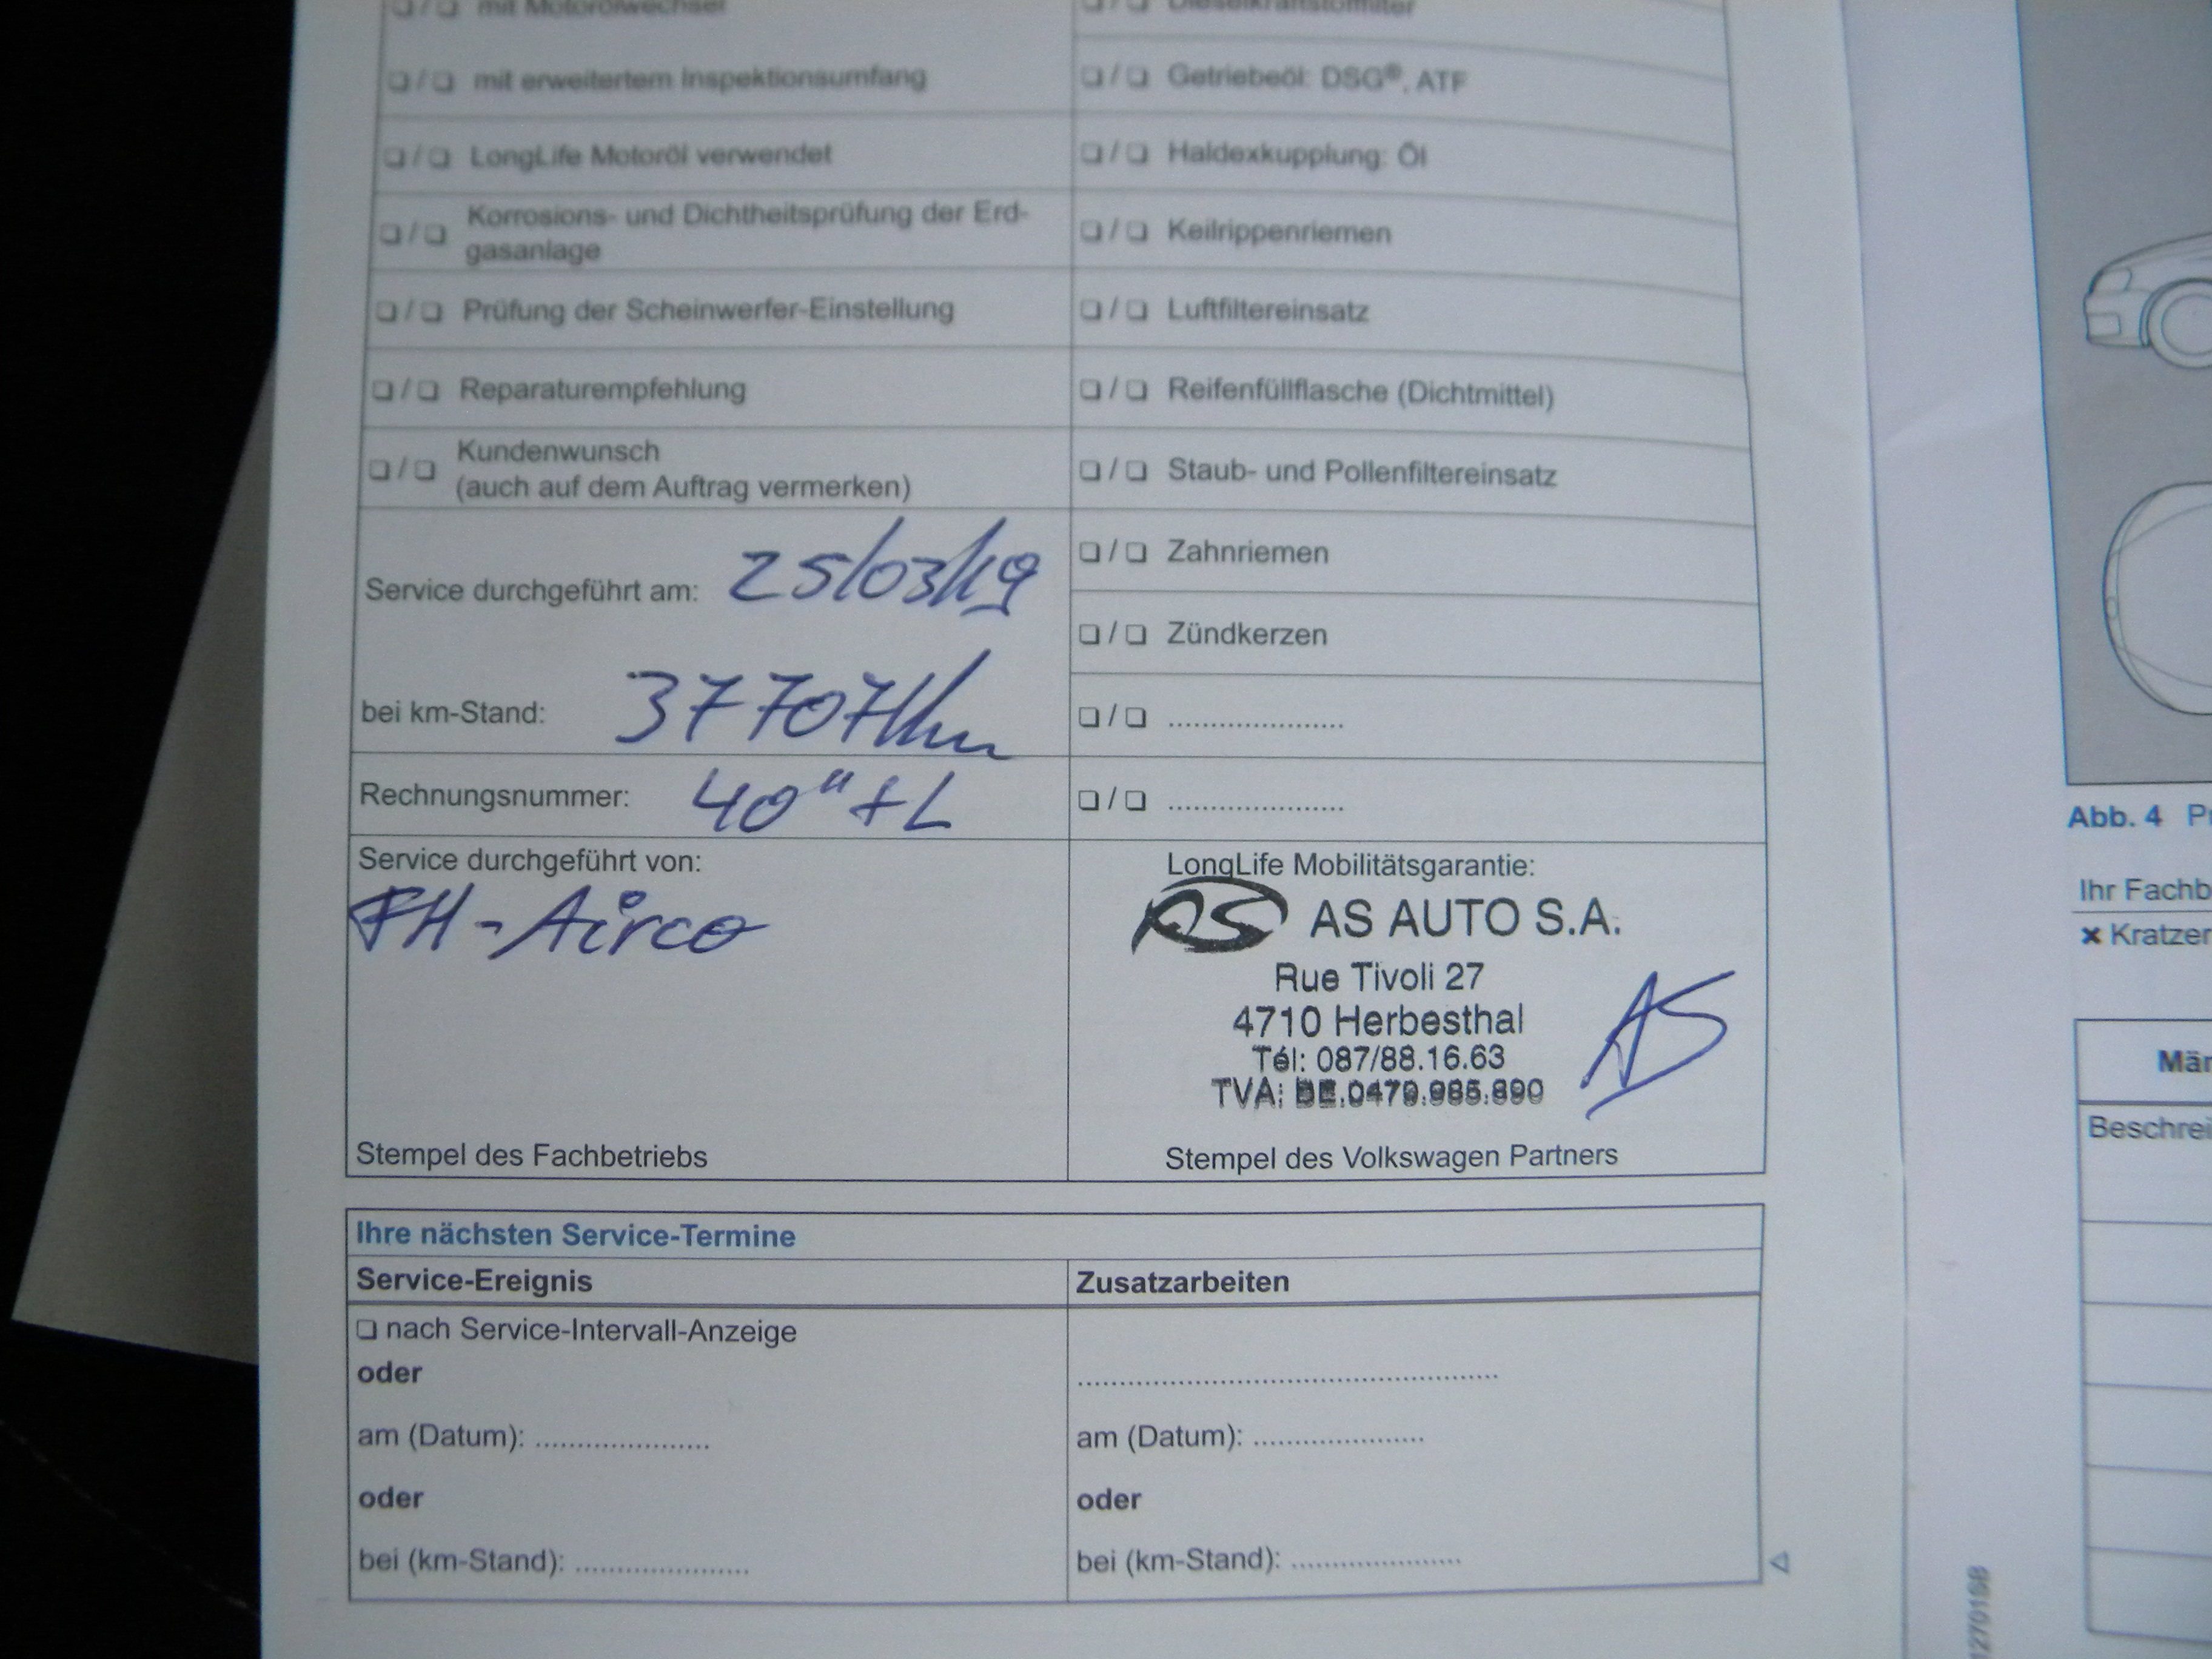 ❏ / ❏ mit Motorölwechsel
❏ / ❏ Dieselkraftstofffilter
❏ / ❏ mit erweitertem Inspektionsumfang
❏ / ❏ Getriebeöl: DSG®, ATF
❏ / ❏ LongLife Motoröl verwendet
❏ / ❏ Haldexkupplung: Öl
❏ / ❏ Korrosions- und Dichtheitsprüfung der Erd-
gasanlage
❏ / ❏ Keilrippenriemen
❏ / ❏ Prüfung der Scheinwerfer-Einstellung
❏ / ❏ Luftfiltereinsatz
❏ / ❏ Reparaturempfehlung
❏ / ❏ Reifenfüllflasche (Dichtmittel)
❏ / ❏ Kundenwunsch
(auch auf dem Auftrag vermerken)
❏ / ❏ Staub- und Pollenfiltereinsatz
Service durchgeführt am: 25/03/19
❏ / ❏ Zahnriemen
❏ / ❏ Zündkerzen
bei km-Stand: 37707 km
❏ / ❏ ......................
Rechnungsnummer: 40" + L
❏ / ❏ ......................
Service durchgeführt von:
FH-Airco
Stempel des Fachbetriebs
LongLife Mobilitätsgarantie:
AS AUTO S.A.
Rue Tivoli 27
4710 Herbesthal
Tél: 087/88.16.63
TVA: BE.0479.985.890
AS
Stempel des Volkswagen Partners
Ihre nächsten Service-Termine
Service-Ereignis
Zusatzarbeiten
❏ nach Service-Intervall-Anzeige
oder
am (Datum): ......................
oder
bei (km-Stand): ......................
.....................................................
am (Datum): ......................
oder
bei (km-Stand): ......................
Abb. 4
Ihr Fachb
✖ Kratzer
Män
Beschrei